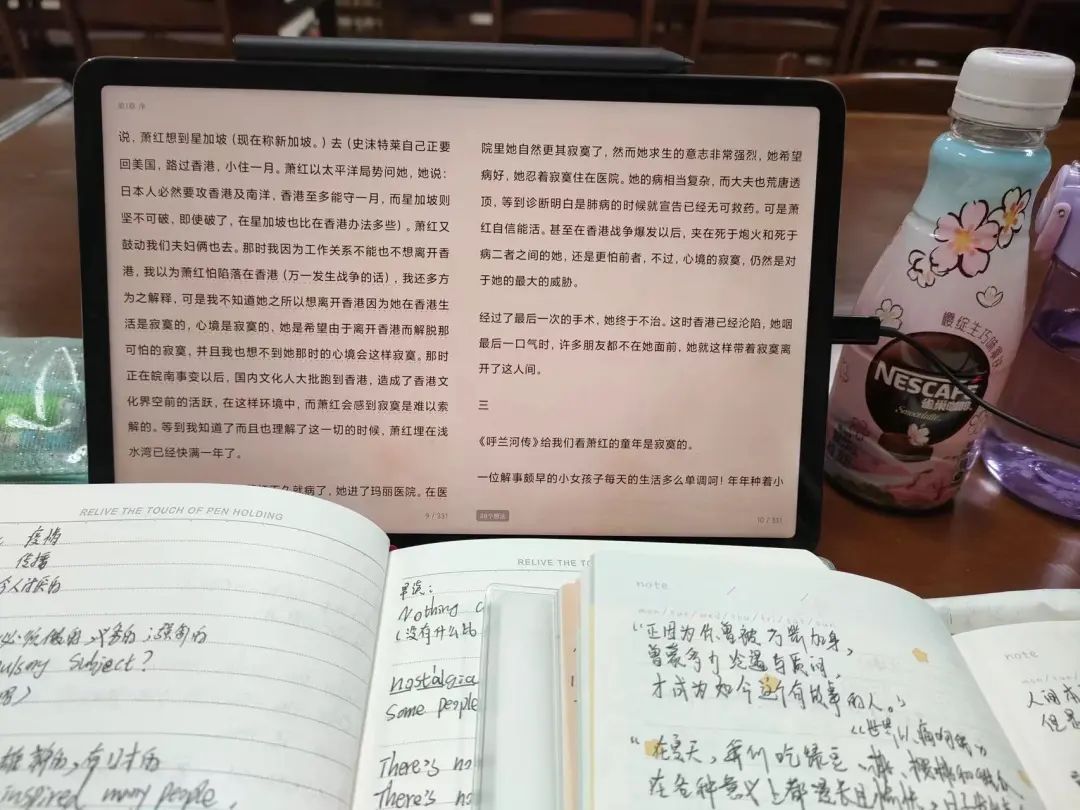 第1章 序
说，萧红想到星加坡（现在称新加坡。）去（史沫特莱自己正要
回美国，路过香港，小住一月。萧红以太平洋局势问她，她说：
日本人必然要攻香港及南洋，香港至多能守一月，而星加坡则
坚不可破，即使破了，在星加坡也比在香港办法多些）。萧红又
鼓动我们夫妇俩也去。那时我因为工作关系不能也不想离开香
港，我以为萧红怕陷落在香港（万一发生战争的话），我还多方
为之解释，可是我不知道她之所以想离开香港因为她在香港生
活是寂寞的，心境是寂寞的，她是希望由于离开香港而解脱那
可怕的寂寞，并且我也想不到她那时的心境会这样寂寞。那时
正在皖南事变以后，国内文化人大批跑到香港，造成了香港文
化界空前的活跃，在这样环境中，而萧红会感到寂寞是难以索
解的。等到我知道了而且也理解了这一切的时候，萧红埋在浅
水湾已经快满一年了。
不久就病了，她进了玛丽医院。在医
9 / 331
院里她自然更其寂寞了，然而她求生的意志非常强烈，她希望
病好，她忍着寂寞住在医院。她的病相当复杂，而大夫也荒唐透
顶，等到诊断明白是肺病的时候就宣告已经无可救药。可是萧
红自信能活。甚至在香港战争爆发以后，夹在死于炮火和死于
病二者之间的她，还是更怕前者，不过，心境的寂寞，仍然是对
于她的最大的威胁。
经过了最后一次的手术，她终于不治。这时香港已经沦陷，她咽
最后一口气时，许多朋友都不在她面前，她就这样带着寂寞离
开了这人间。
三
《呼兰河传》给我们看萧红的童年是寂寞的。
一位解事颇早的小女孩子每天的生活多么单调呵！年年种着小
10 / 331
樱绽生巧味拿铁
NESCAFÉ
雀巢咖啡
Smoovlatte
RELIVE THE TOUCH OF PEN HOLDING
疫病
传播
令人讨厌的
义务的；强制的
subject?
有口才的
inspired many people.
RELIVE THE TO
早读：
Nothing
（没有什么比
nostalgia
Some people
There's no
There's no
note
mon/tue/wed/thu/fri/sat/sun
“正因为你曾被刀斧加身，
曾蒙多方论遇与质问，
才成为如今这个有故事的人。”
《世界以痛吻我》
“在夏天，我们吃绿豆、桃、樱桃和甜瓜，
在各种意义上都漫长且愉快，
note
人间
但是